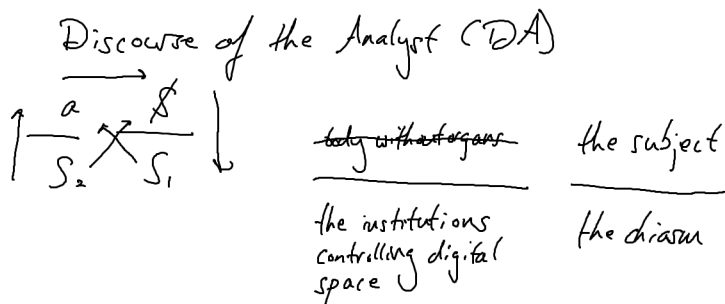 Discourse of the Analyst (DA)
a $
S₂ S₁
body without organs
the subject
the institutions
controlling digital
space
the chiasm